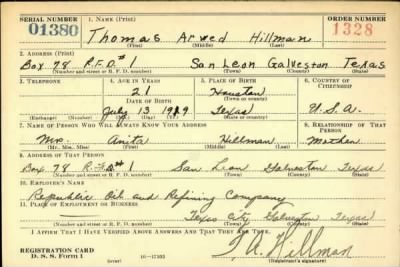 SERIAL NUMBER 1. NAME (Print) ORDER NUMBER
01380 Thomas Arwed Hillman 1328
(First) (Middle) (Last)
2. ADDRESS (Print)
Box 78 R.F.D.#1 San Leon Galveston Texas
(Number and street or R. F. D. number) (Town) (County) (State)
3. TELEPHONE 4. AGE IN YEARS 5. PLACE OF BIRTH 6. COUNTRY OF CITIZENSHIP
21 Houston
(Town or county)
DATE OF BIRTH
July 13 1919 Texas U.S.A.
(Exchange) (Number) (Mo.) (Day) (Yr.) (State or country)
7. NAME OF PERSON WHO WILL ALWAYS KNOW YOUR ADDRESS 8. RELATIONSHIP OF THAT PERSON
Mrs. Anita Hillman Mother
(Mr., Mrs., Miss) (First) (Middle) (Last)
9. ADDRESS OF THAT PERSON
Box 78 R.F.D.#1 San Leon Galveston Texas
(Number and street or R. F. D. number) (Town) (County) (State)
10. EMPLOYER'S NAME
Republic Oil and Refining Company
11. PLACE OF EMPLOYMENT OR BUSINESS
Texas City Galveston Texas
(Number and street or R. F. D. number) (Town) (County) (State)
I AFFIRM THAT I HAVE VERIFIED ABOVE ANSWERS AND THAT THEY ARE TRUE.
REGISTRATION CARD
D. S. S. Form 1 (over) 16—17105
T. A. Hillman
(Registrant's signature)